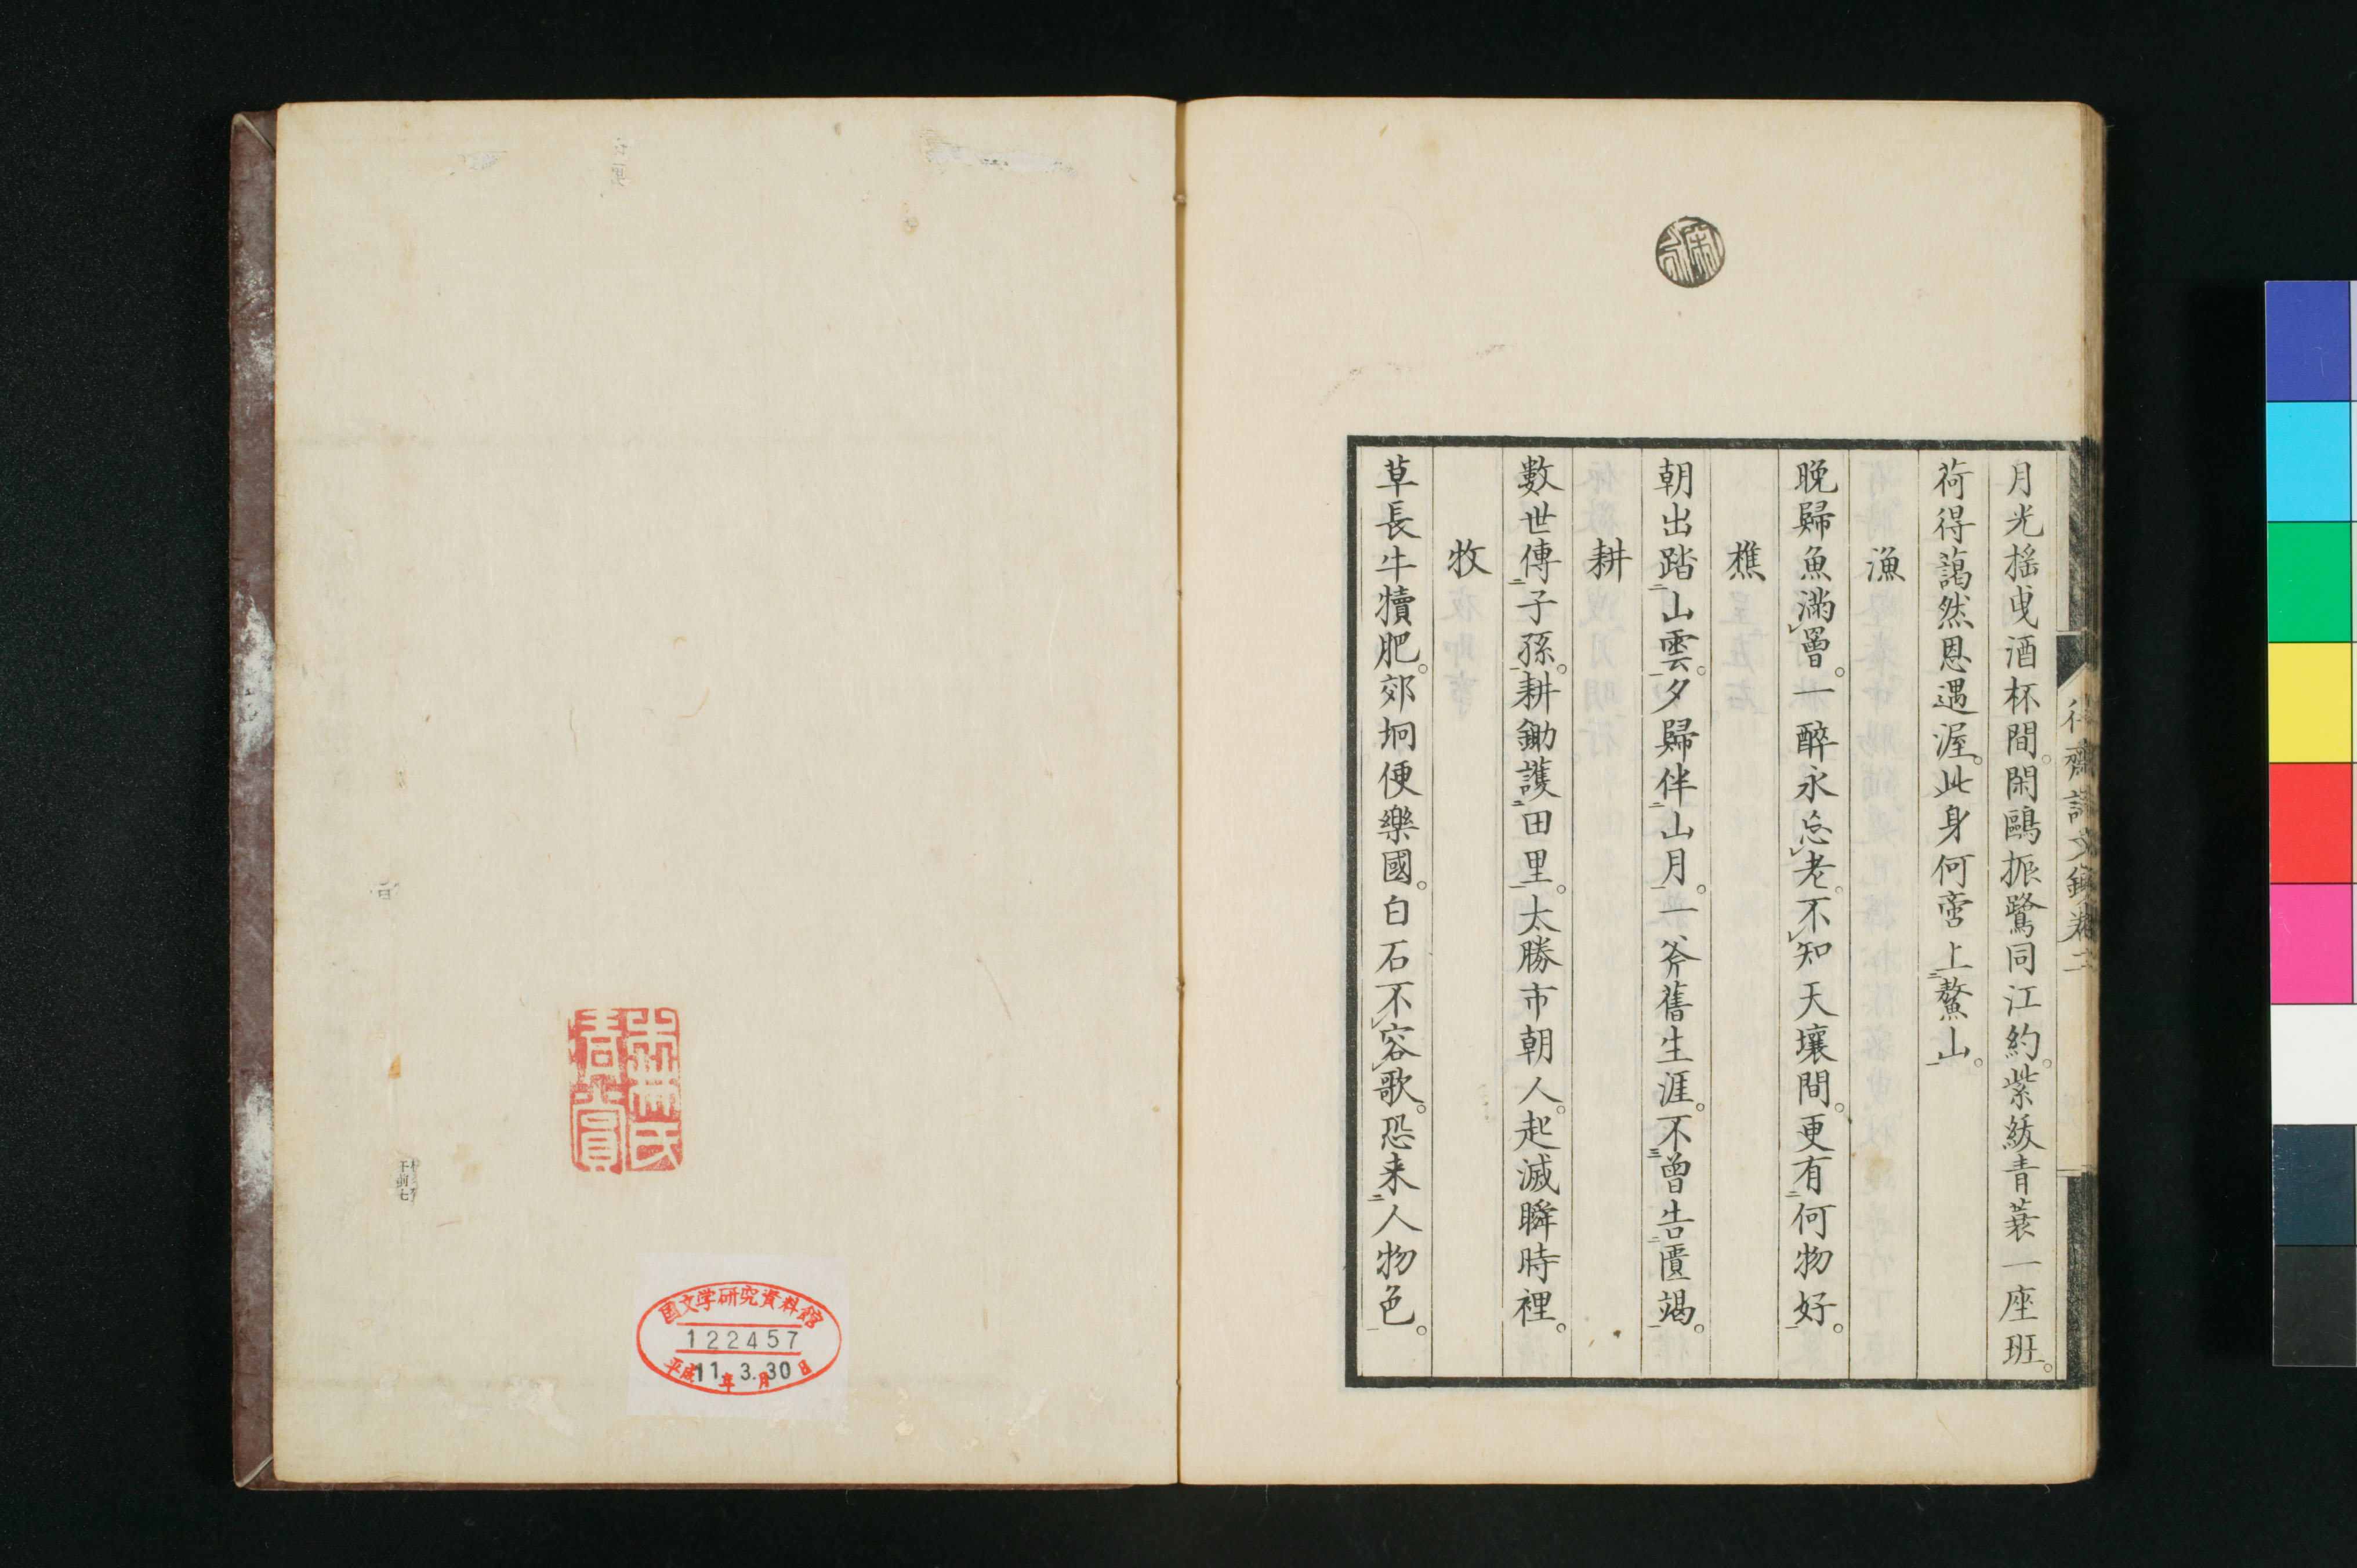 月光搖曳酒杯間閑鷗振鷺同江約紫紱青蓑一座班
荷得藹然恩遇渥此身何啻上鰲山
漁
晚歸魚滿罾一醉永忘老不知天壤間更有何物好
樵
朝出踏山雲夕歸伴山月一斧舊生涯不曾告匱竭
耕
數世傳子孫耕鋤護田里太勝市朝人起滅瞬時裡
牧
草長牛犢肥郊坰便樂國白石不容歌恐来人物色
齋詩文鈔卷二
国文学研究資料館
122457
平成11年3月30日